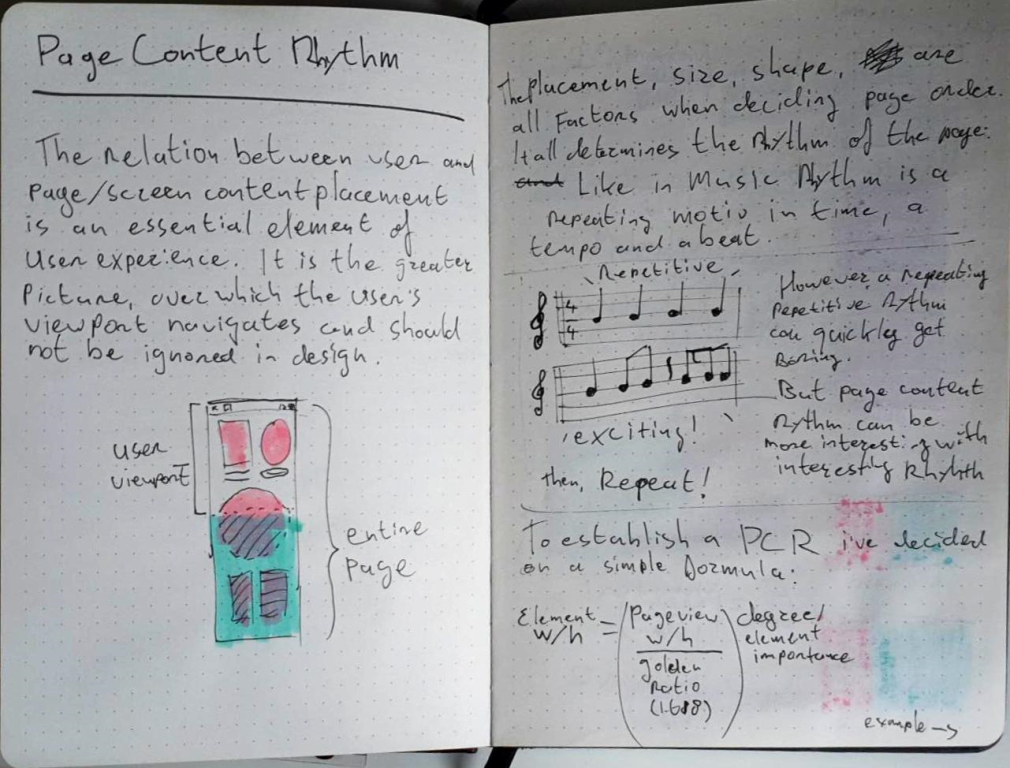 Page Content Rhythm
The relation between user and
page/screen content placement
is an essential element of
User experience. It is the greater
Picture, over which the user's
viewport navigates and should
not be ignored in design.
user
viewport
entire
page
The placement, size, shape, are
all Factors when deciding page order.
It all determines the Rhythm of the page.
and Like in Music Rhythm is a
repeating motiv in time, a
tempo and a beat.
Repetitive
4
4
exciting!
then, Repeat!
However a repeating
Repetitive Rythm
can quickley get
Boring.
But page content
Rythm can be
more interesting with
interesting Rhythm
To establish a PCR i've decided
on a simple Formula:
Element
w/h
=
Pageview
w/h
golden
Ratio
(1.618)
degree/
element
importance
example →